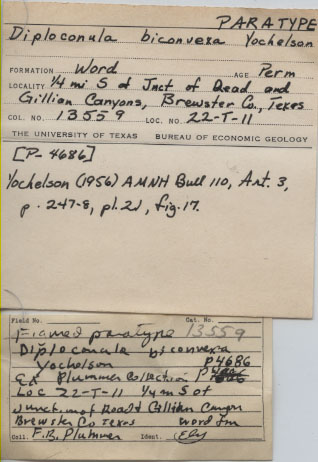 PARATYPE
Diploconula biconvexa Yochelson
FORMATION Word AGE Perm
LOCALITY 1/4 mi S of Jnct of Dead and
Gillian Canyons, Brewster Co., Texas
COL. NO. 13559 LOC. NO. 22-T-11
THE UNIVERSITY OF TEXAS BUREAU OF ECONOMIC GEOLOGY
[P-4686]
Yochelson (1956) AMNH Bull 110, Art. 3,
p. 247-8, pl. 21, fig. 17.
Field No. Cat. No.
Figured paratype 13559
Diploconula biconvexa
Yochelson P4686
Plummer Collection
Loc 22-T-11 1/4 m S of
Junction of Road & Gillian Canyon
Brewster Co Texas Word fm
Coll. F.B. Plummer Ident. Ely